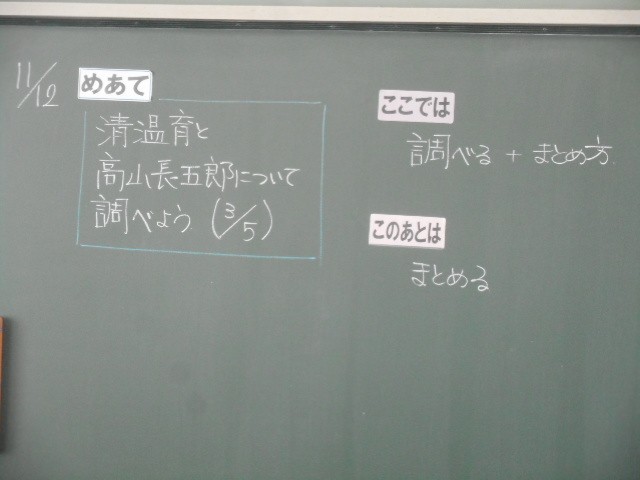 11/12
めあて
清温育と
高山長五郎について
調べよう (3/5)
ここでは
調べる + まとめ方
このあとは
まとめる